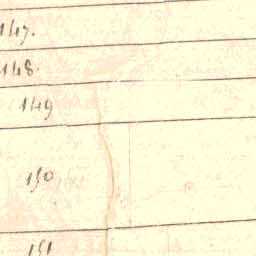 147.
148
149
150
151